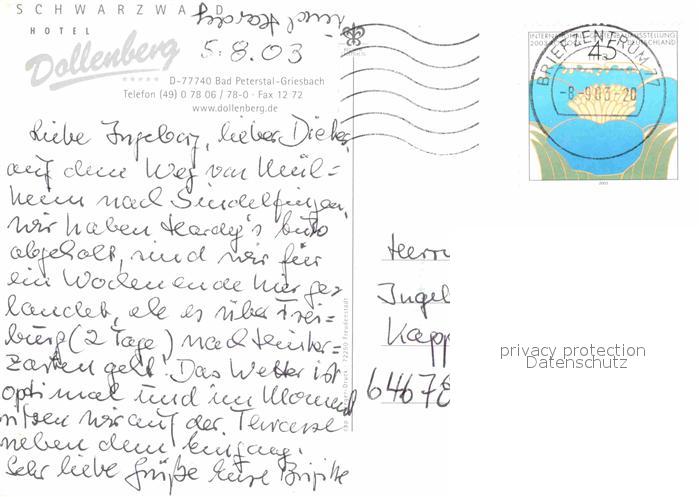 SCHWARZWALD
HOTEL
Dollenberg
D-77740 Bad Peterstal-Griesbach
Telefon (49) 0 78 06 / 78-0 · Fax 12 72
www.dollenberg.de
und Hardy
5.8.03
Liebe Ingeborg, lieber Dieter,
auf dem Weg von Müll=
heim nach Sindelfingen,
wir haben Hardy's Auto
abgeholt, sind wir für
ein Wochenende hier ge=
landet, ehe es über Frei=
burg (2 Tage) nach Hinter=
zarten geht! Das Wetter ist
optimal und im Moment
sitzen wir auf der Terrasse
neben dem Eingang.
Sehr liebe Grüße Eure Brigitte
INTERNATIONALE GARTENBAUAUSSTELLUNG
2003 DEUTSCHLAND
45
BRIEFZENTRUM 77
-8.-9.03-20
2003
Herrn
Ingel
Kapp
64678
72250 Freudenstadt
privacy protection
Datenschutz